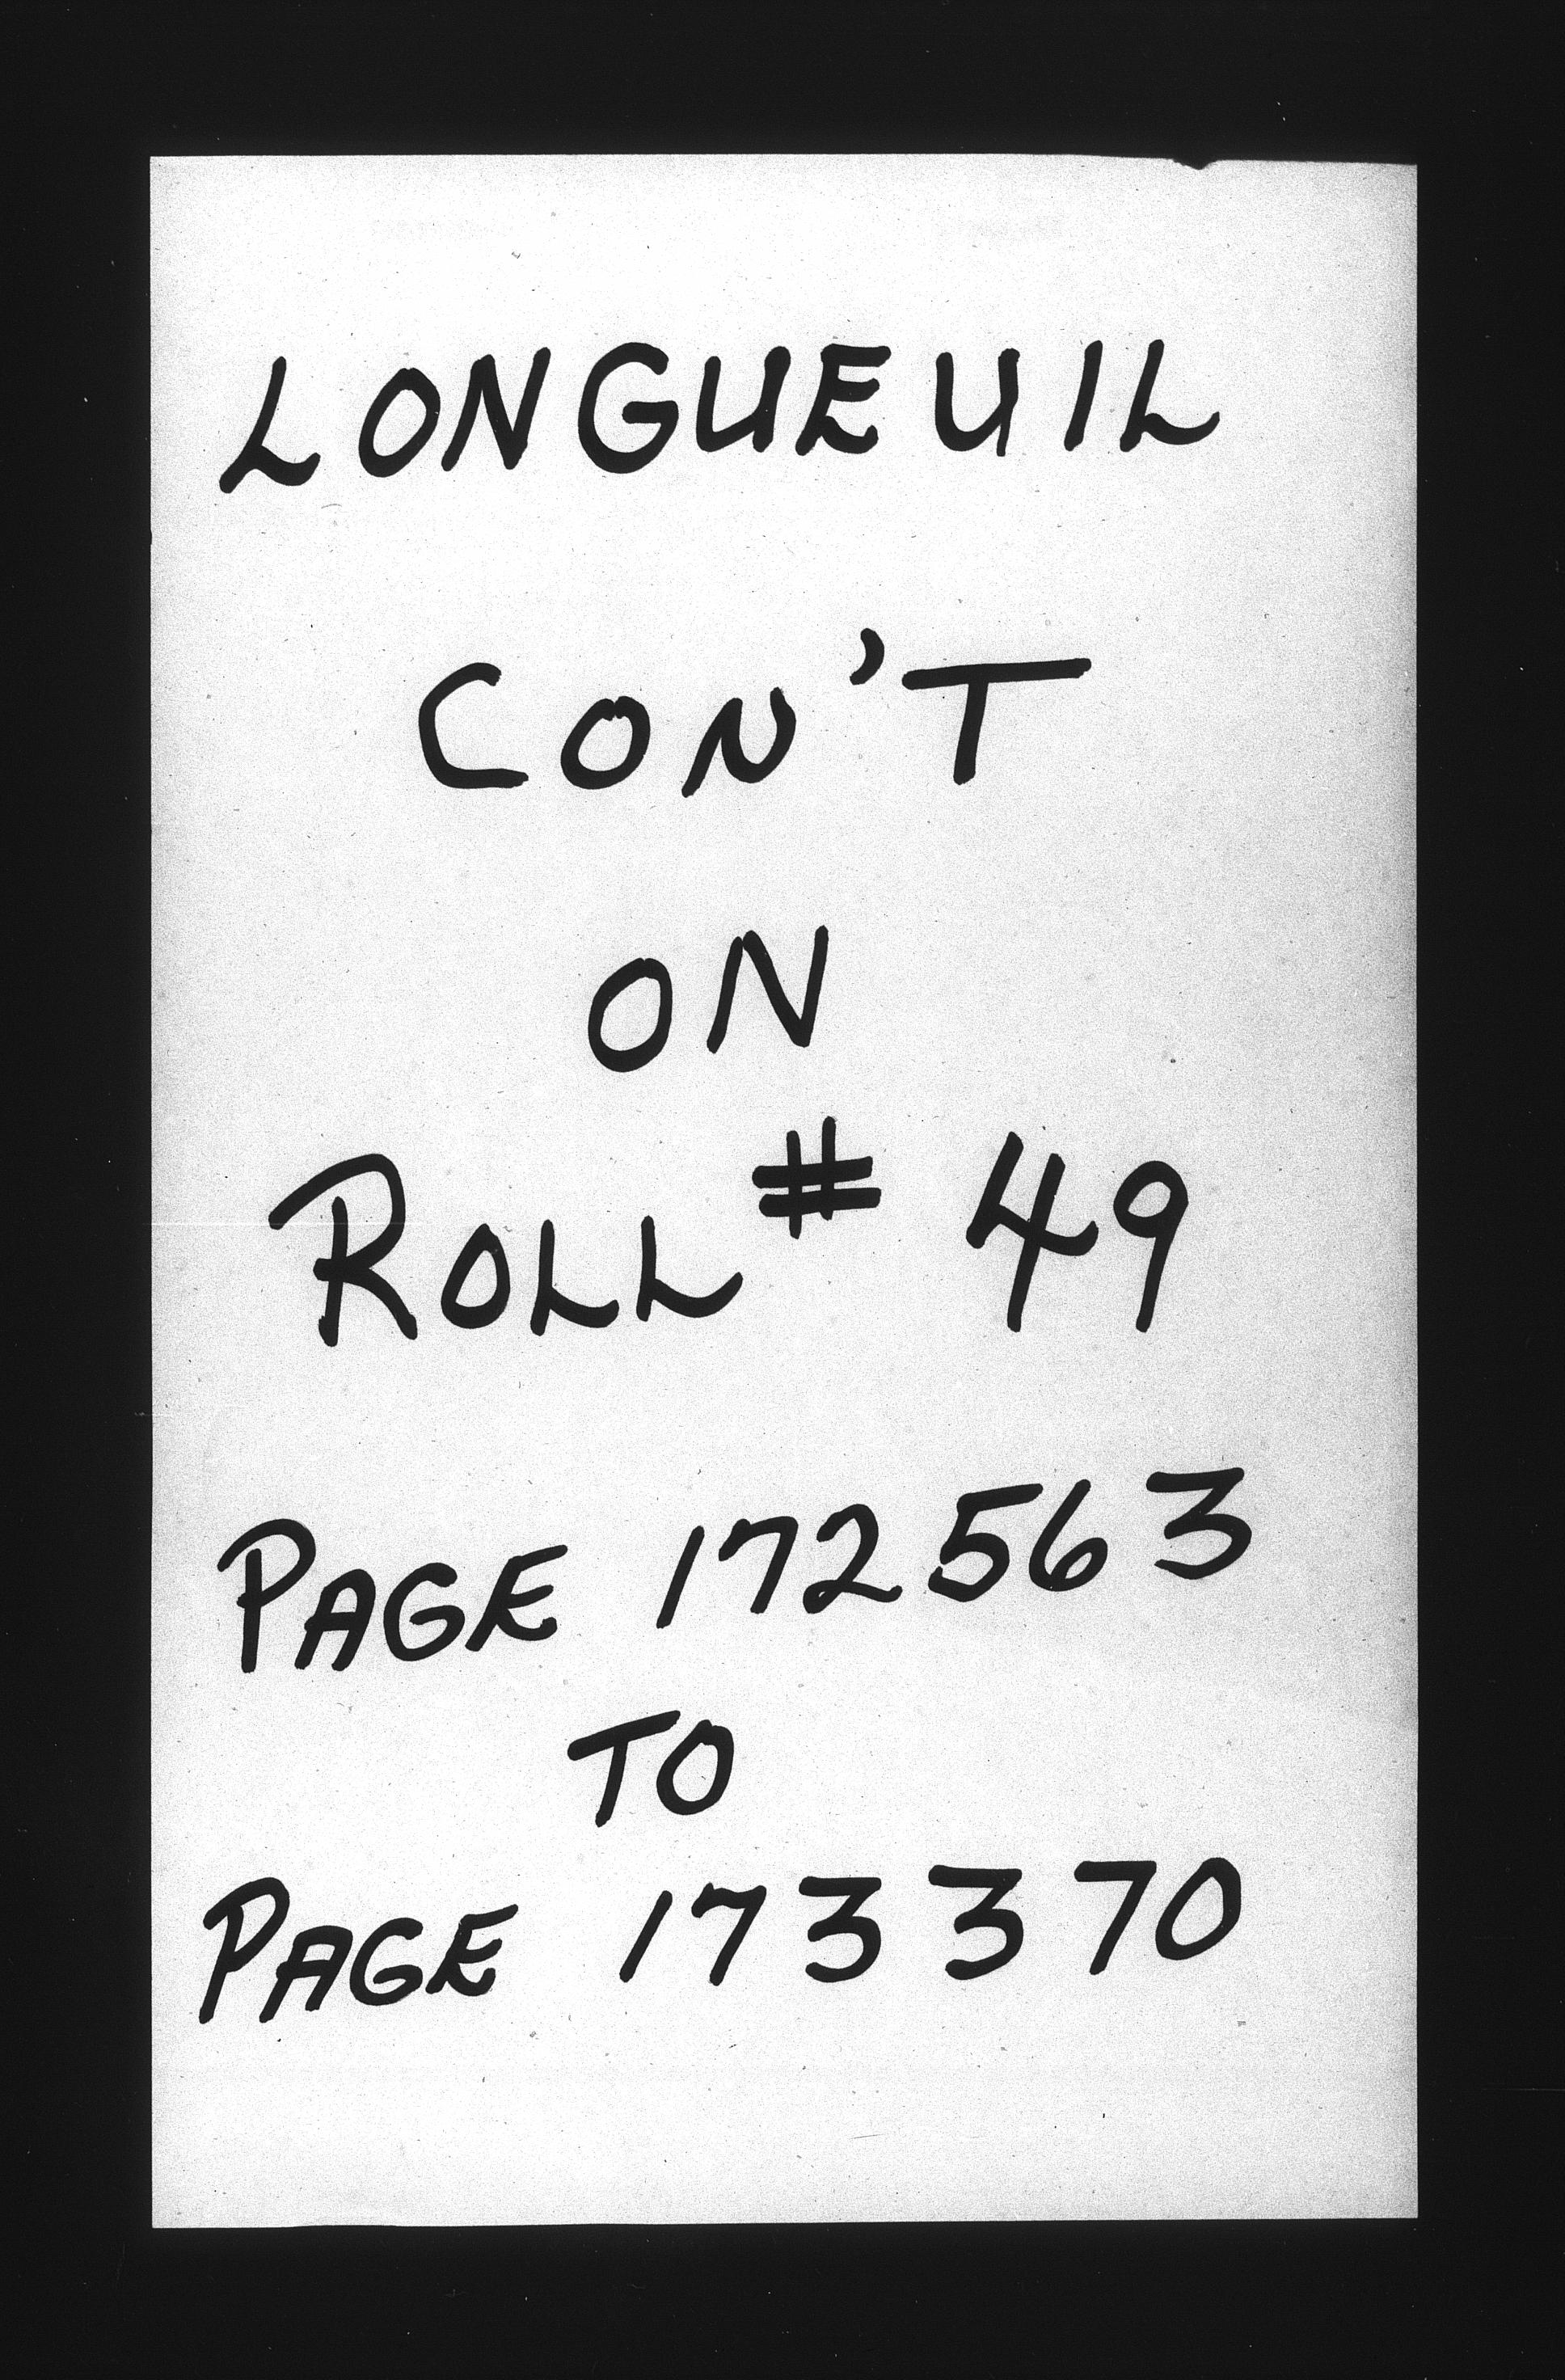 LONGUEUIL
CON'T
ON
ROLL # 49
PAGE 172563
TO
PAGE 173370